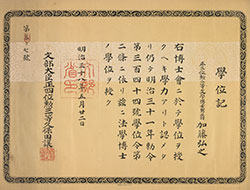 學位記
加藤弘之
右博士會ニ於テ學位ヲ授
クヘキ學力アリト認メタ
リ仍テ明治三十一年勅令
第三百四十四號學位令第
二條ニ依リ茲ニ法學博士
ノ學位ヲ授ク
明治三十八年 月廿二日
文部大臣正四位勲三等久保田讓
第 七號